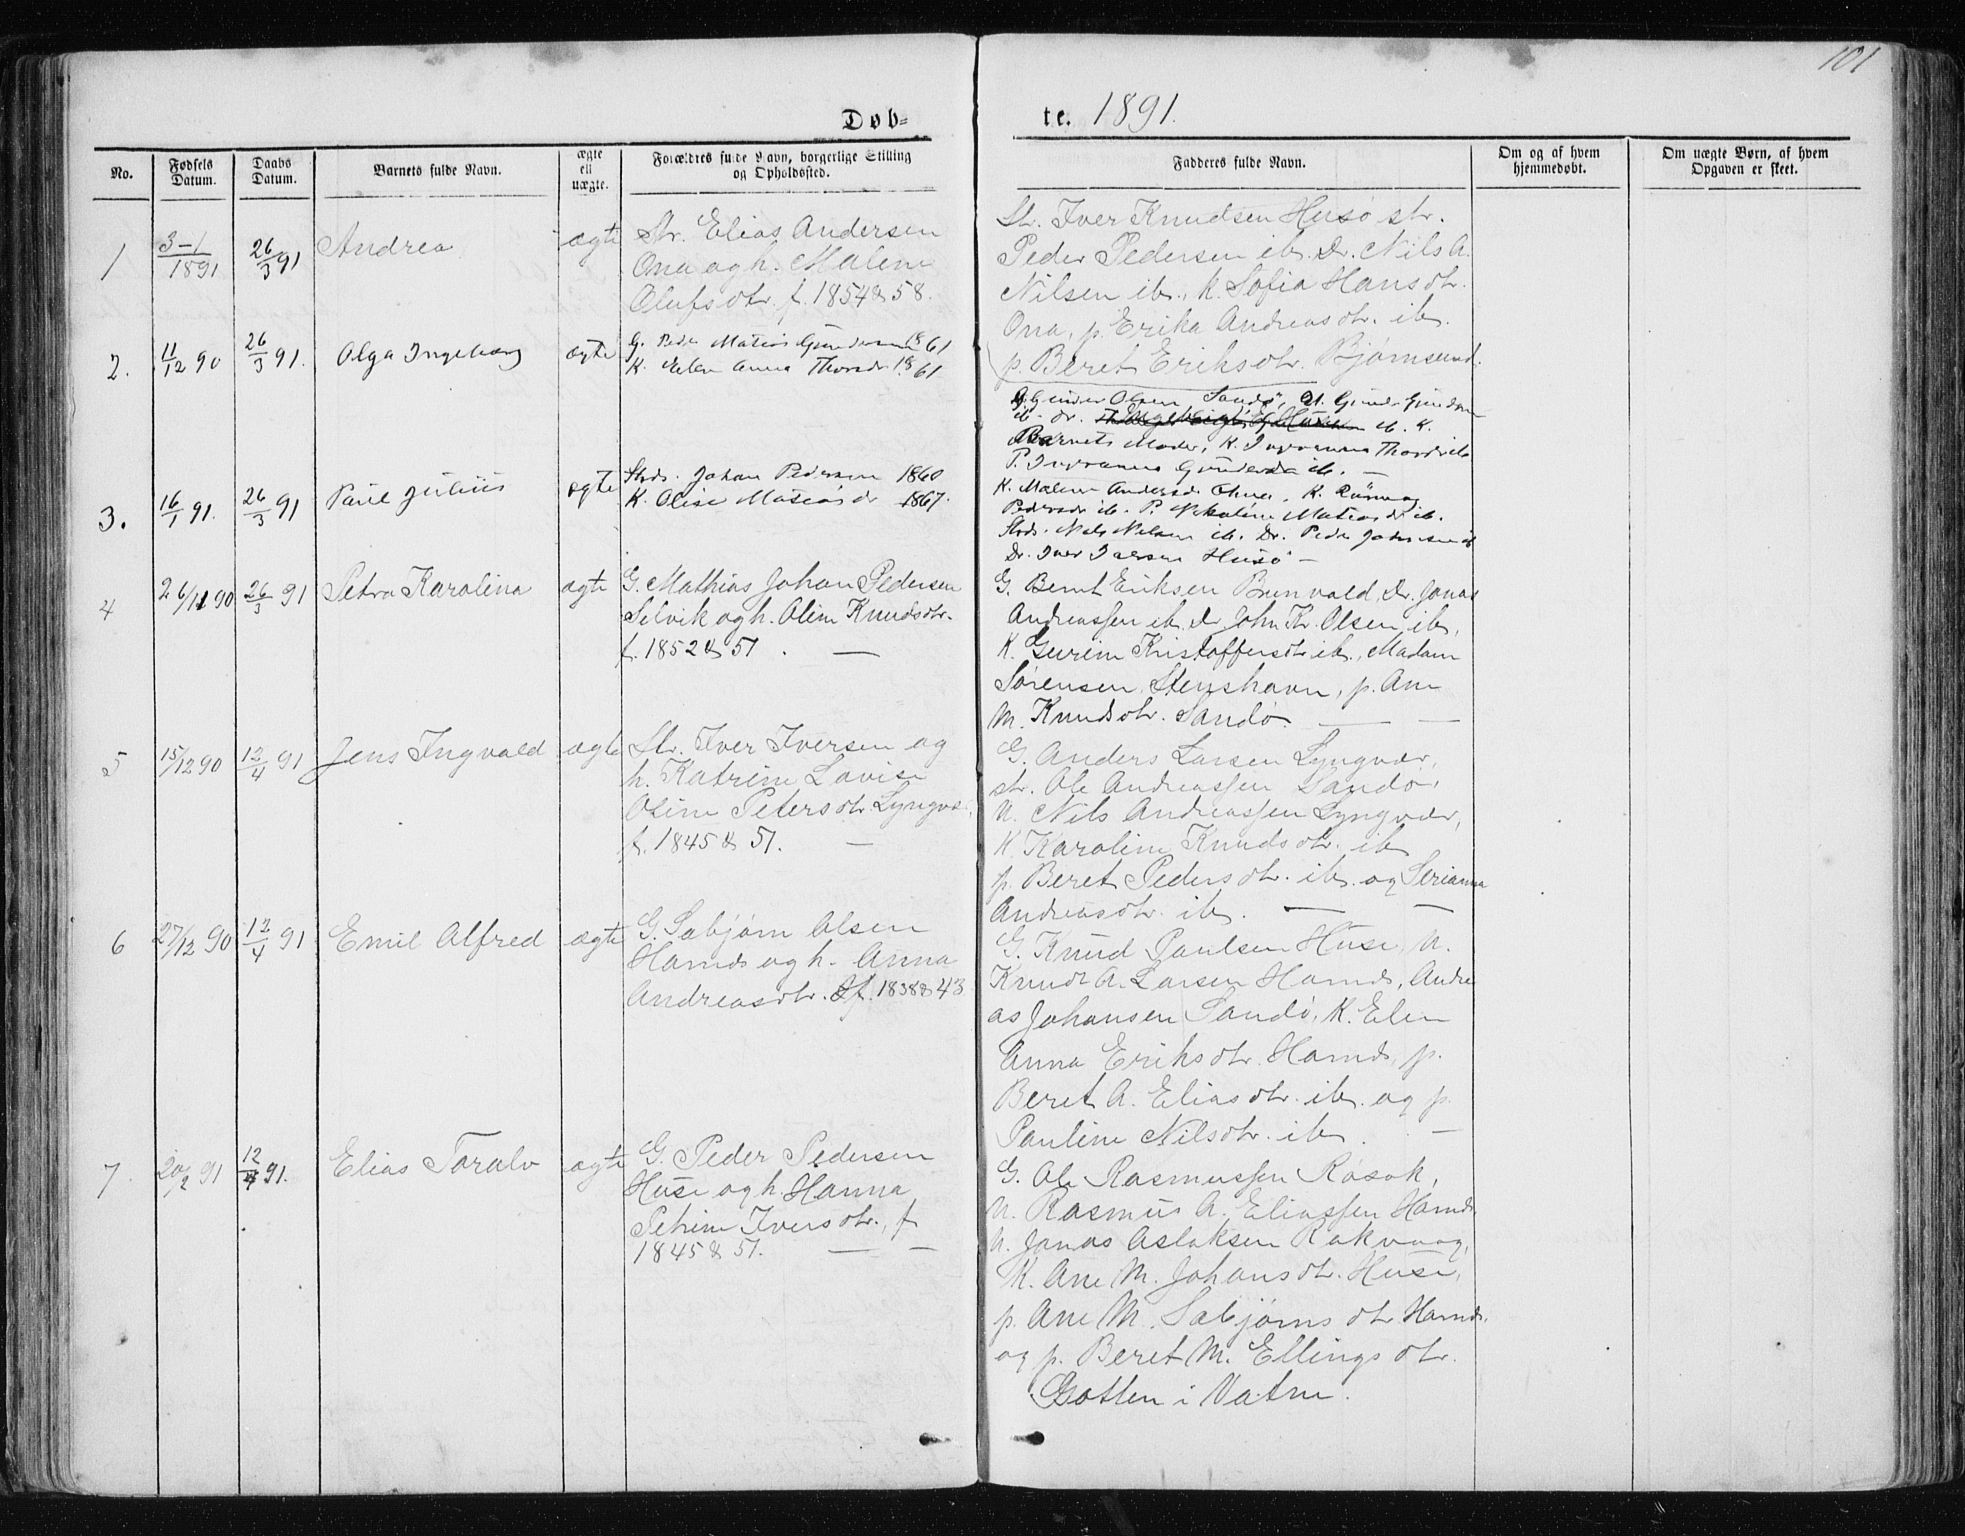 101
Døb=
te. 1891.
No.
Fødsels Datum.
Daabs Datum.
Barnets fulde Navn.
ægte ell uægte.
Forældres fulde Navn, borgerlige Stilling og Opholdssted.
Fadderes fulde Navn.
Om og af hvem hjemmedøbt.
Om uægte Børn, af hvem Opgaven er skeet.
1
3-1/1891
26/3 91
Andrea
ægte
Str. Elias Andersen
Ona og h. Malene
Olufsdtr. f. 1854 & 58.
St. Iver Knudsen Husö str.
Peder Pedersen ib. Dr. Nils A.
Nilsen ib., K. Sofia Hansdtr.
Ona, p. Erika Andreasdtr. ib.
p. Beret Eriksdtr. Bjørnsund.
2.
11/12 90
26/3 91.
Olga Ingeborg
ægte
G. Peder Matias Gundersen 1861
K. Elen Anna Thorsdr 1861
G. Gunder Olsen Sandö, U. Gunder Gundersen
ib. dr. ib. K.
Barnets Moder, K. Ingeranna Thorsdr ib
P. Ingeranna Gundersdr ib. —
3.
16/1 91.
26/3 91
Paul Julius
ægte
Strds. Johan Pedersen 1860
K. Olise Matiasdr 1867.
K. Malene Andersdr Ohna, K.
Pedersdr ib. P. Nikoline Matiasdr ib.
Strds. Nils Nilsen ib. Dr. Peder Johnsen ib
Dr. Iver Iversen Husö —
4
26/11 90
26/3 91
Petra Karolina
ægte
G. Mathias Johan Pedersen
Selvik og h. Oline Knudsdtr.
f. 1852 & 57. —
G. Bernt Eriksen Brunvold, Dr. Jonas
Andreassen ib. Dr John Kr. Olsen ib,
K. Gurine Kristoffersdtr ib., Madam
Sørensen, Stenshavn, p. Ane
M. Knudsdtr. Sandö. — —
5
15/12 90
12/4 91
Jens Ingvald
ægte
Str. Iver Iversen og
h. Katrine Lovise
Oline Petersdtr. Lyngvær,
f. 1845 & 51. —
G. Anders Larsen Lyngvær,
str. Ole Andreassen Sandö,
U. Nils Andreassen Lyngvær,
K. Karoline Knudsdtr. ib
p. Beret Pedersdtr. ib. og Serianna
Andreasdtr. ib. — —
6
27/12 90
12/4 91
Emil Alfred
ægte
G. Sæbjørn Olsen
Harnds og h. Anna
Andreasdtr. f. 1838 & 43
G. Knud Paulsen Huse, U.
Knudt A. Larsen Harnds, Andre
as Johansen Sandö, K. Elen
Anna Eriksdtr. Harnds, p.
Beret A. Eliasdtr. ib. og p.
Pauline Nilsdtr. ib. —
7.
20/2 91
12/4 91.
Elias Toralv
ægte
G. Peder Pedersen
Huse og h. Hanna
Petrine Iversdtr., f
1845 & 51. — —
G. Ole Rasmussen Røsok,
U. Rasmus A. Eliassen Harnds
U. Jonas Aslaksen Rakvaag,
K. Ane M. Johansdtr. Huse,
p. Ane M. Sæbjørnsdtr Harnds.
og p. Beret M. Ellingsdtr.
Gotten i Vatne.